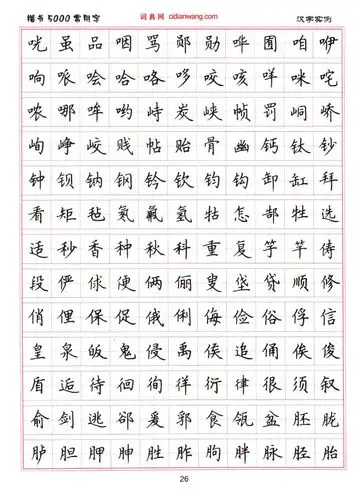 楷书 5000 常用字 词典网 cidianwang.com 汉字实例
咣 虽 品 咽 骂 郧 勋 哗 囿 咱 咿
响 哌 哙 哈 咯 哆 咬 咳 咩 咪 咤
哝 哪 哞 哟 峙 炭 峡 帧 罚 峒 峤
峋 峥 峧 贱 帖 贻 骨 幽 钙 钛 钞
钟 钡 钠 钢 钤 钦 钧 钩 卸 缸 拜
看 矩 毡 氡 氟 氢 牯 怎 郜 牲 选
适 秒 香 种 秋 科 重 复 竽 竿 俦
段 俨 俅 便 俩 俪 叟 垡 贷 顺 修
俏 俚 保 促 俄 俐 侮 俭 俗 俘 信
皇 泉 皈 鬼 侵 禹 侯 追 俑 俟 俊
盾 逅 待 徊 徇 徉 衍 律 很 须 叙
俞 剑 逃 郤 爰 郛 食 瓴 盆 胚 胧
胪 胆 胛 胂 胜 胙 胸 胖 脉 胫 胎
26